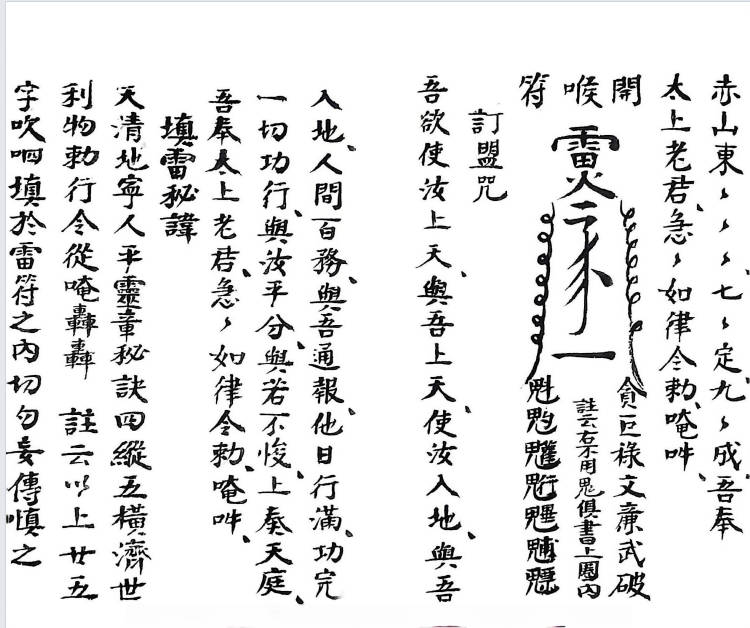 赤山東〻〻〻七〻定九〻成、吾奉
太上老君、急〻如律令勅、唵吽、
開喉符
雷火
二
一
貪巨祿文廉武破
註云右不用鬼俱書上圈內
魁
訂盟咒
吾欲使汝上天、與吾上天使汝入地、與吾
入地、人間百務、與吾通報、他日行滿、功完
一切功行、與汝平分、與若不悛、上奏天庭、
吾奉太上老君、急〻如律令勅、唵吽、
填雷秘諱
天清地寧人平靈章秘訣四縱五橫濟世
利物勅行令從唵轟轟 註云以上廿五
字吹呬填於雷符之內切勿妄傳慎之